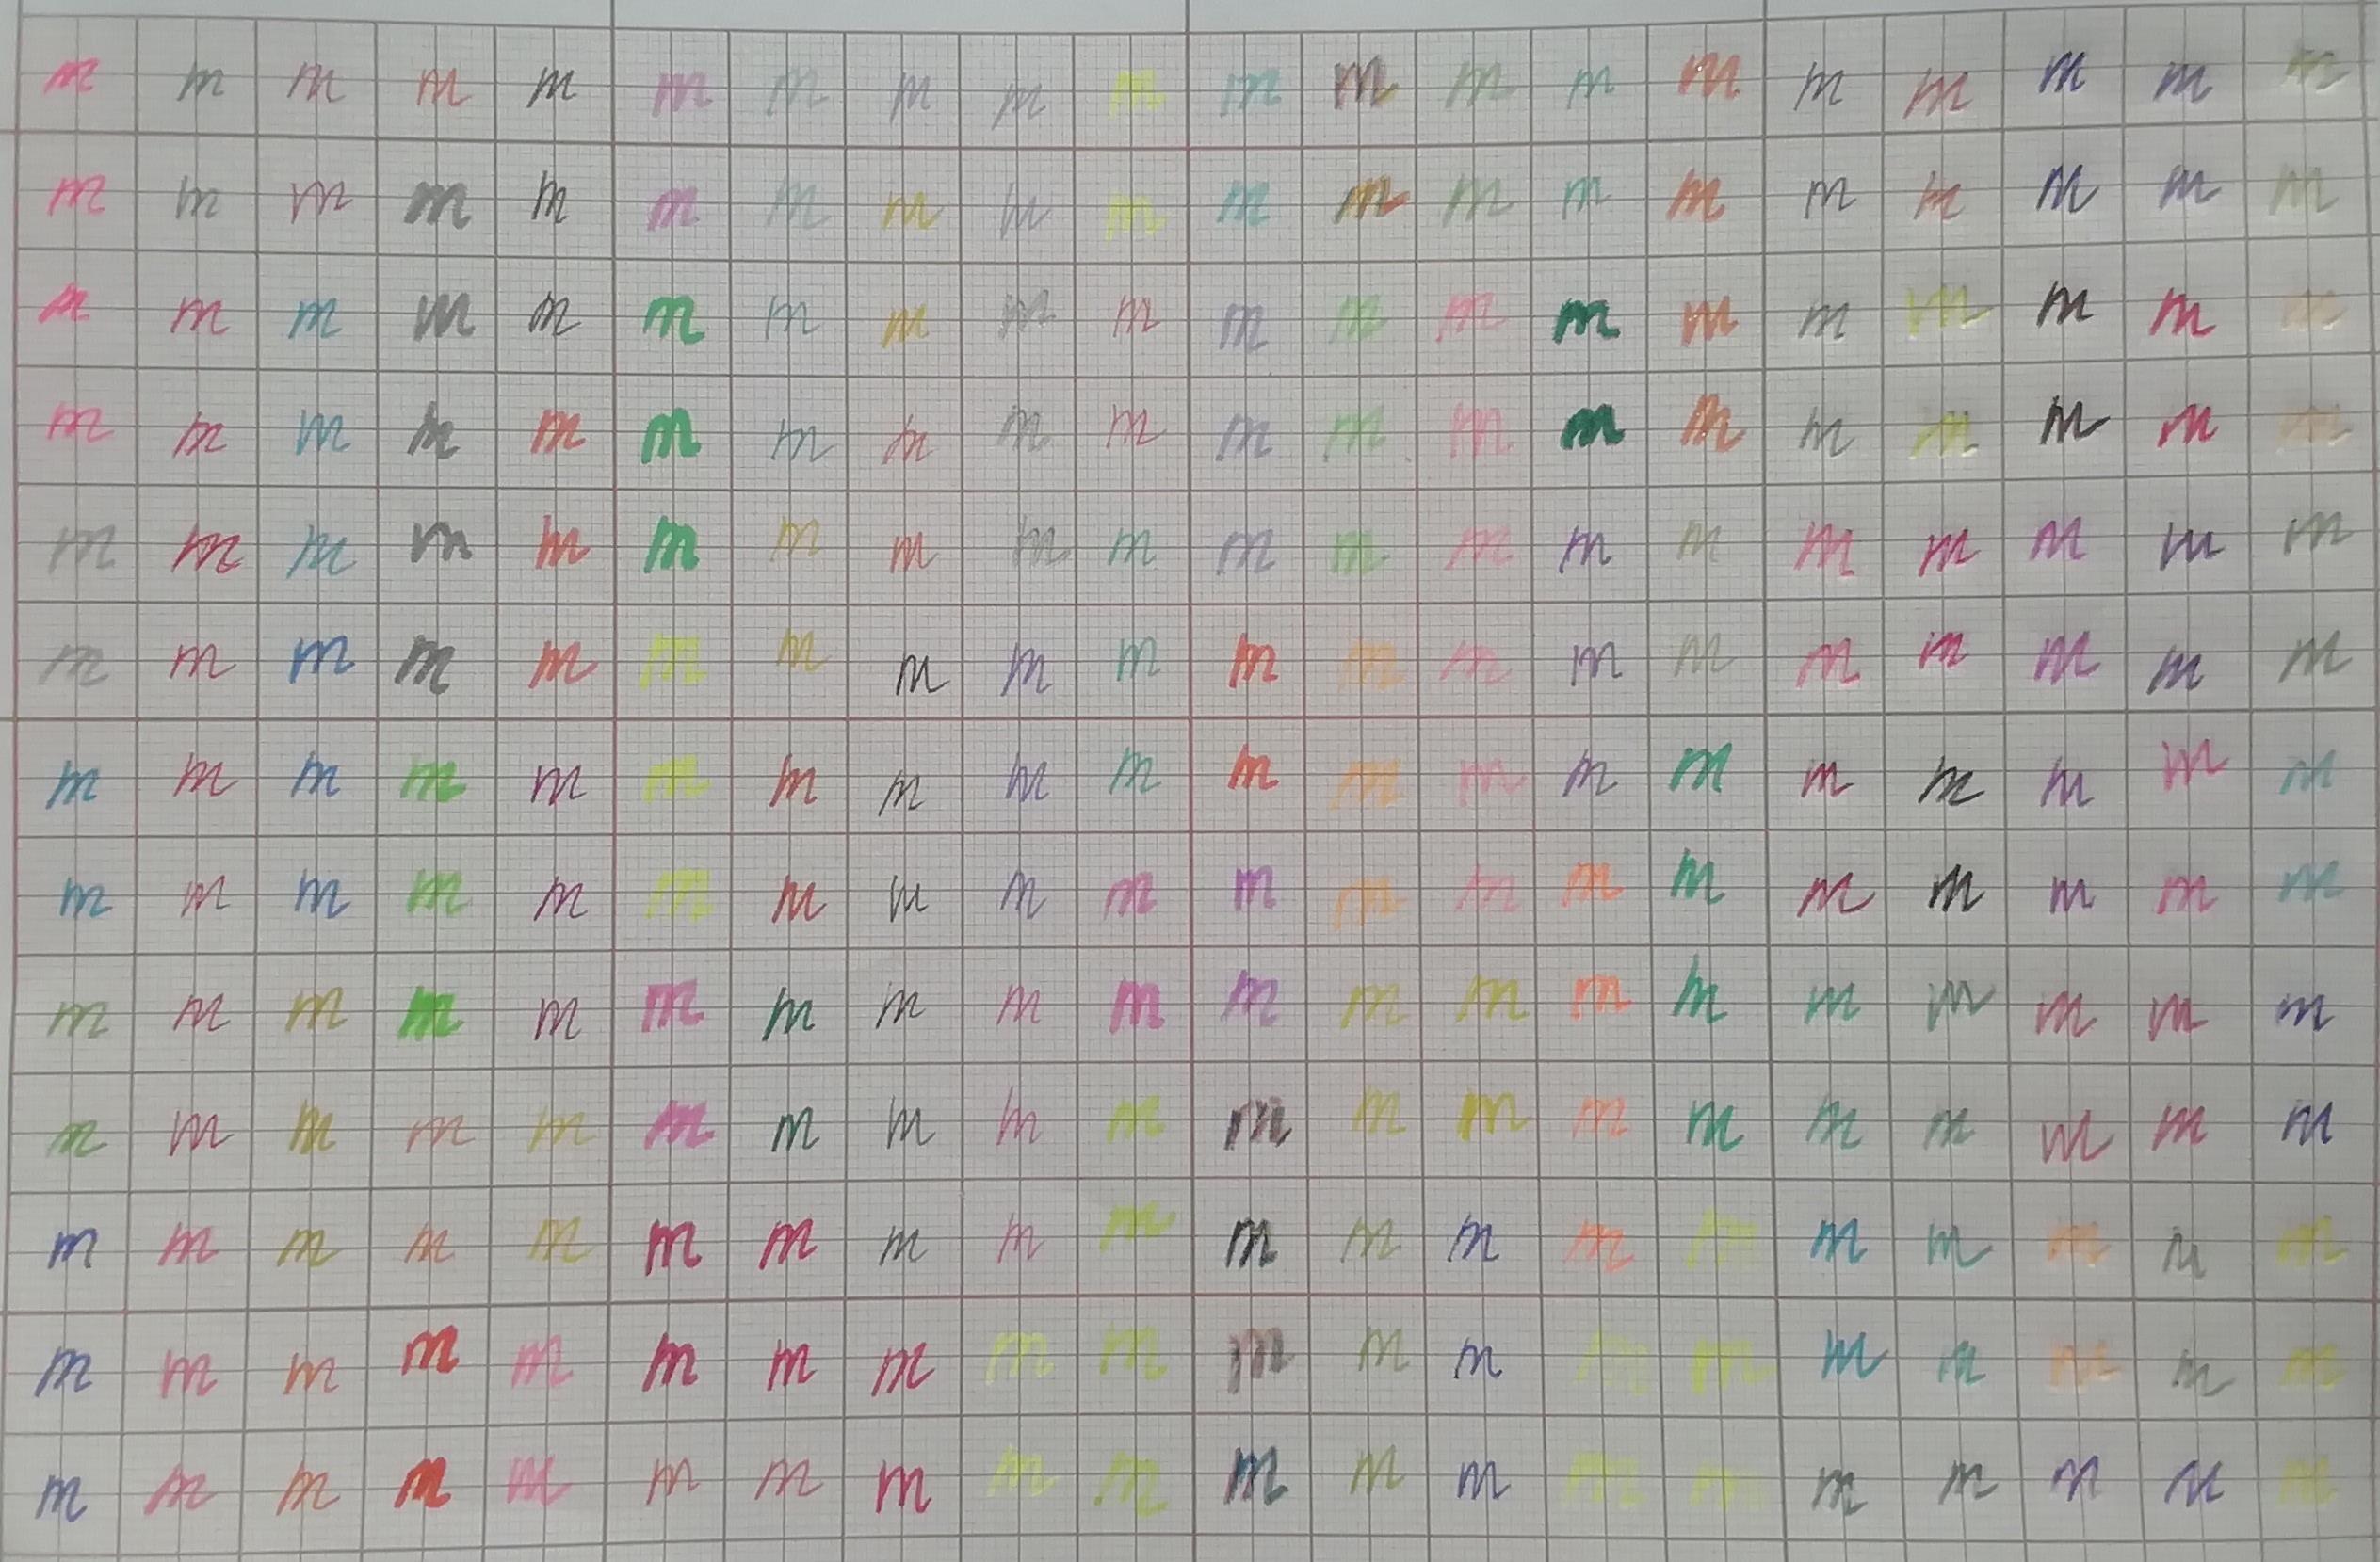 m m m m m m m m m m m m m m m m m m m m
m m m m m m m m m m m m m m m m m m m m
m m m m m m m m m m m m m m m m m m m m
m m m m m m m m m m m m m m m m m m m m
m m m m m m m m m m m m m m m m m m m m
m m m m m m m m m m m m m m m m m m m m
m m m m m m m m m m m m m m m m m m m m
m m m m m m m m m m m m m m m m m m m m
m m m m m m m m m m m m m m m m m m m m
m m m m m m m m m m m m m m m m m m m m
m m m m m m m m m m m m m m m m m m m m
m m m m m m m m m m m m m m m m m m m m
m m m m m m m m m m m m m m m m m m m m